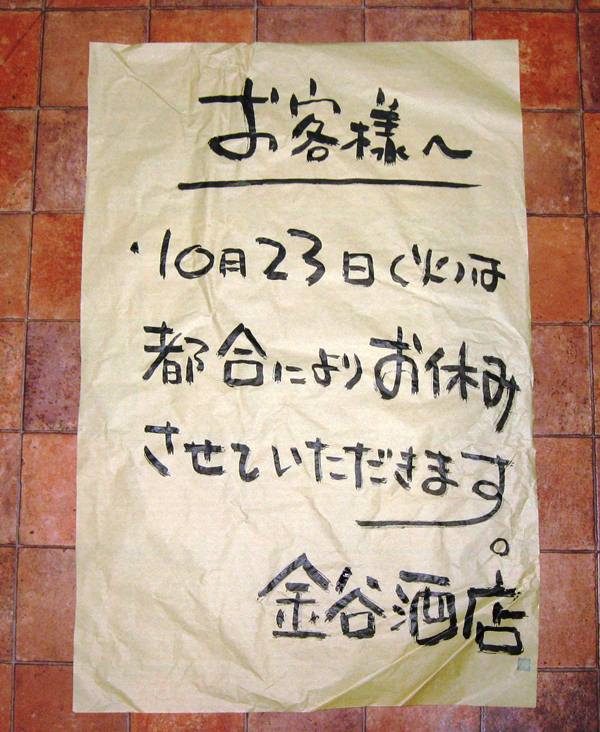 お客様へ
10月23日(火)は
都合によりお休み
させていただきます。
金谷酒店